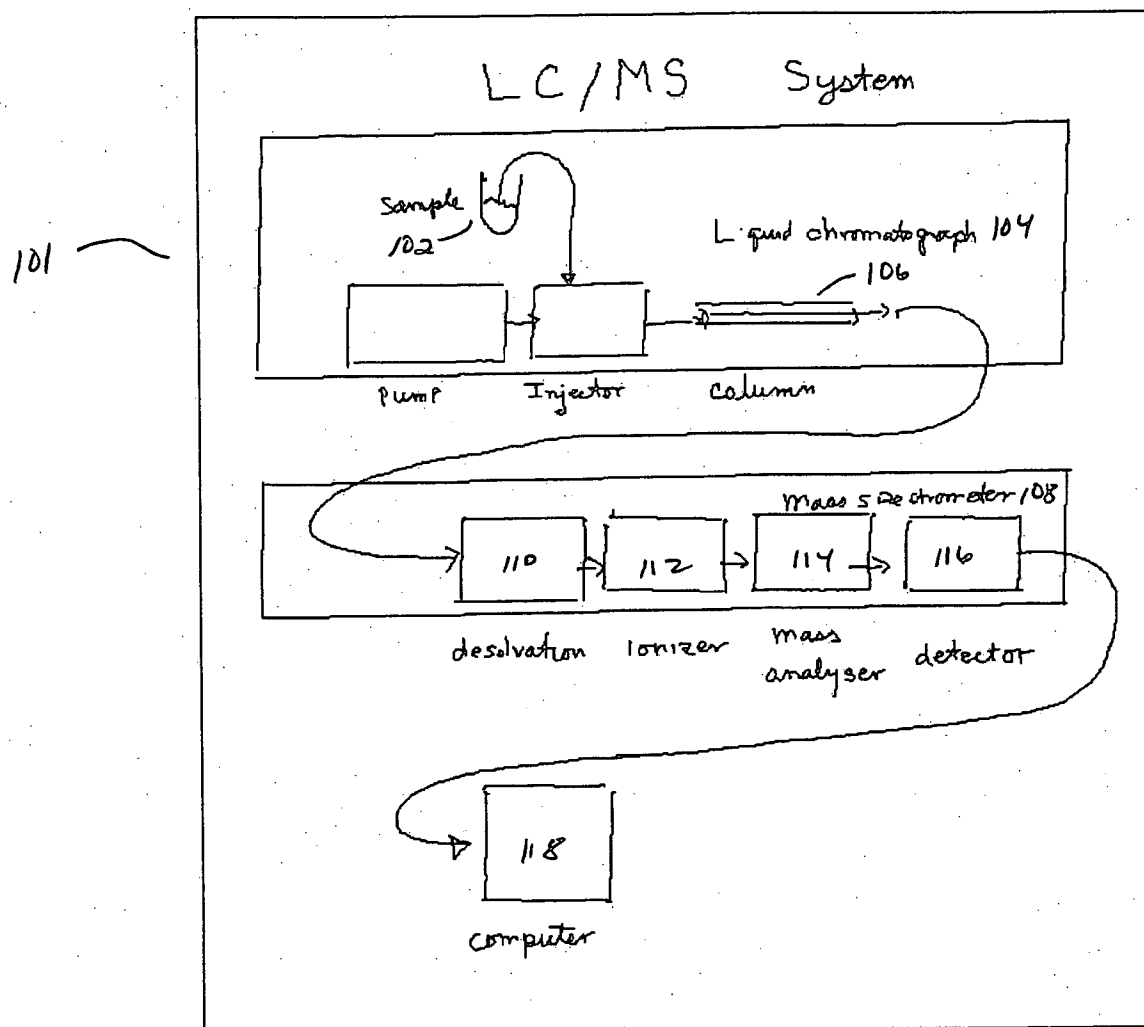 LC/MS System
sample
102
101
Liquid chromatograph 104
106
Pump Injector column
mass spectrometer 108
110 112 114 116
desolvation ionizer mass analyser detector
118
computer